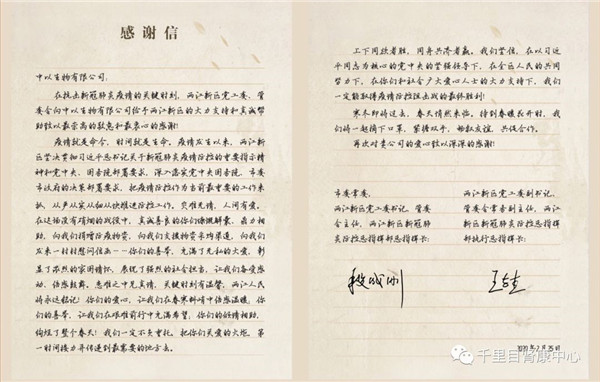 感谢信
中以生物有限公司:
在抗击新冠肺炎疫情的关键时刻,两江新区党工委、管
委会向中以生物有限公司给予两江新区的大力支持和真诚帮
助致以最崇高的敬意和最衷心的感谢!
疫情就是命令,时间就是生命。疫情发生以来,两江新
区坚决贯彻习近平总书记关于新冠肺炎疫情防控的重要指示精
神和党中央、国务院部署要求,深入落实党中央国务院、市委
市政府的决策部署要求,把疫情防控作为当前最重要的工作来
抓,从严从实从细从快推进防控工作。灾难无情,人间有爱。
在这场没有硝烟的战役中,真诚善良的你们慷慨解囊、鼎力相
助,向我们捐赠防疫物资,向我们支援物资采购渠道,向我们
发来一封封慰问信函--你们的善举,充满了无私的大爱,彰
显了浓烈的家国情怀,展现了强烈的社会担当,让我们备受感
动、倍感鼓舞。患难之中见真情,关键时刻有温馨。两江人民
将永远铭记!你们的爱心,让我们在春寒料峭中倍感温暖,你
们的善举,让我们在艰难前行中充满希望,你们的倾情相助,
绚烂了整个春天!我们一定不负重托,把你们关爱的火炬,第
一时间接力并传递到最需要的地方去。
上下同欲者胜,同舟共济者赢。我们坚信,在以习近
平同志为核心的党中央的坚强领导下,在全区人民的共同
努力下,在你们和社会广大爱心人士的大力支持下,我们
一定能取得疫情防控阻击战的最终胜利!
寒冬即将过去,春天悄然来临。待到春暖花开时,我
们将一起摘下口罩,紧握双手,畅叙友谊,共促合作。
再次对贵公司的爱心致以深深的感谢!
市委常委,
两江新区党工委书记、管委
会主任,两江新区新冠肺
炎防控总指挥部总指挥长:
两江新区党工委副书记、
管委会常务副主任,两江
新区新冠肺炎防控总指挥
部执行总指挥长:
段成刚
2020年2月25日
千里目肾康中心